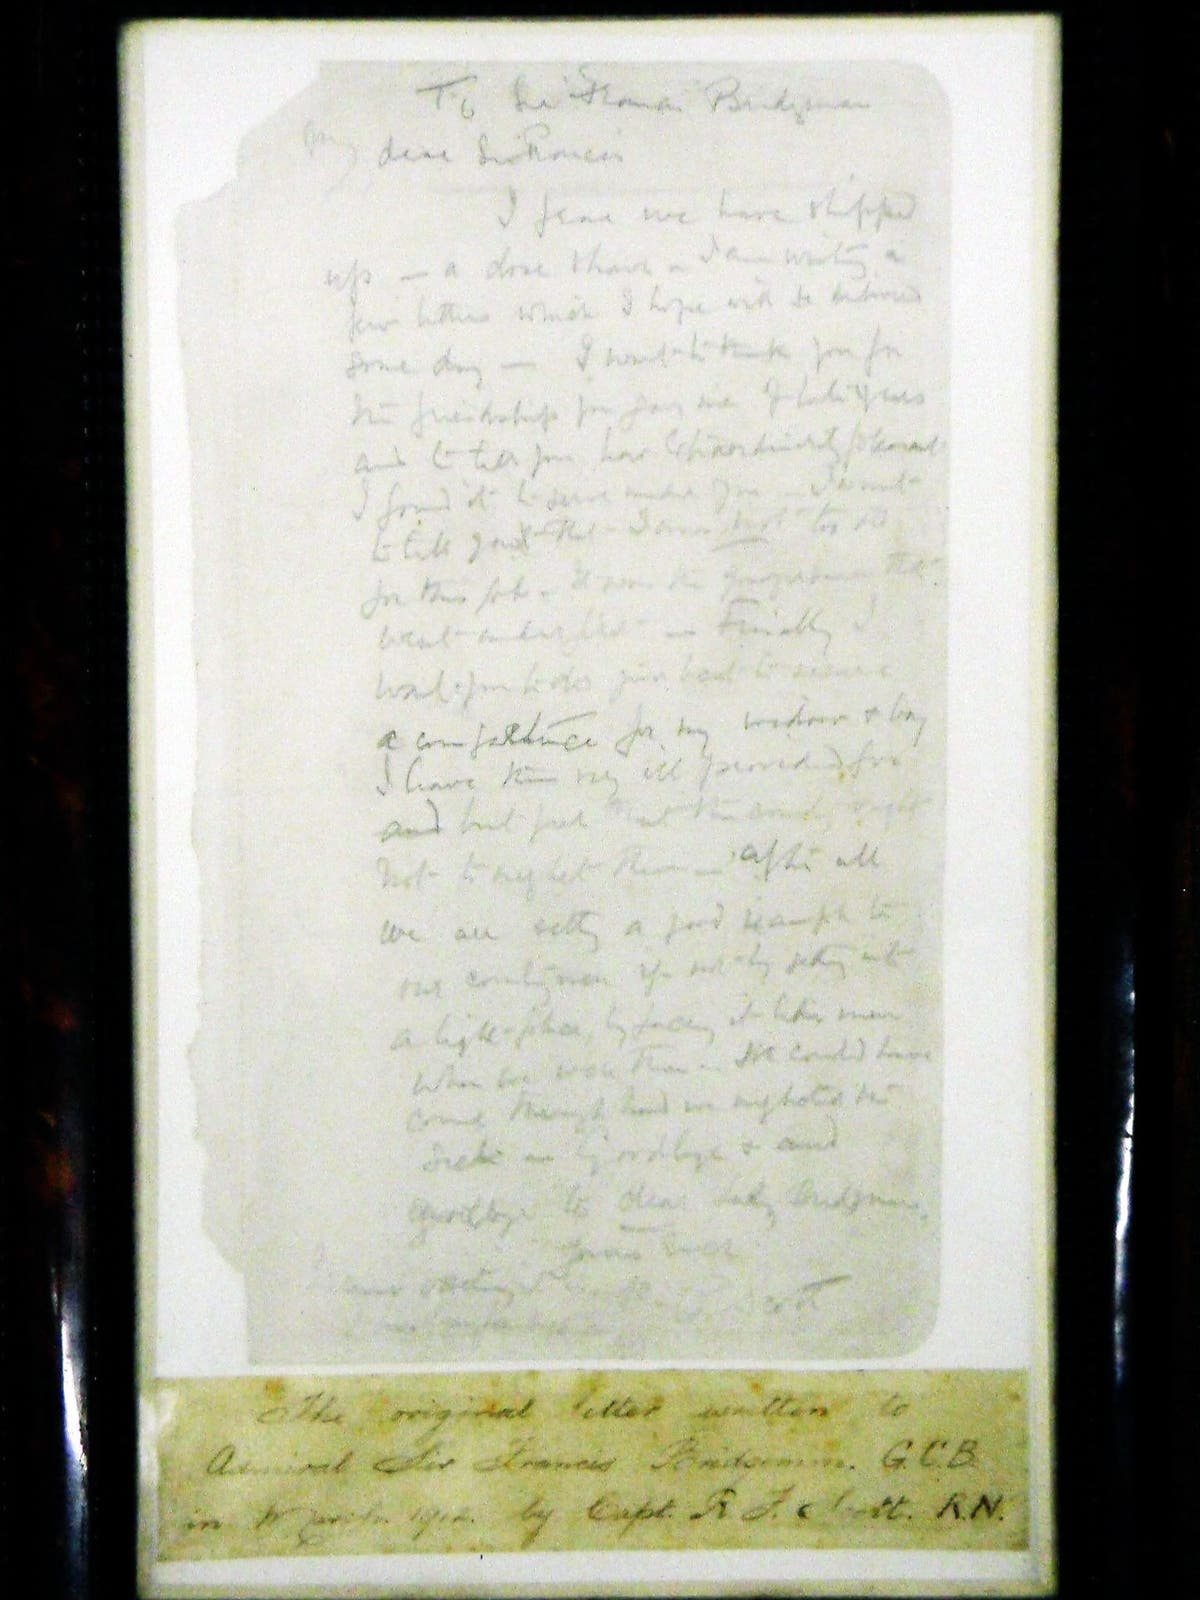 To Sir Francis Bridgeman
My dear Sir Francis
I fear we have shipped
up — a close shave — I am writing a
few letters which I hope will be delivered
some day — I want to thank you for
the friendship you gave me of late years
and to tell you how extraordinarily pleasant
I found it to serve under you — I want
to tell you that I was not too old
for this job — It was the younger men that
went under first — Finally I
want you to do your best to secure
a competence for my widow & boy
I leave them very ill provided for
and but feel that the country ought
not to neglect them — After all
we are setting a good example to
our countrymen if not by getting into
a tight place, by facing it like men
when we were there — We could have
come through had we neglected the
sick — Goodbye & and
goodbye to dear Lady Bridgeman,
Yours ever
R. Scott
The original letter written to
Admiral Sir Francis Bridgeman. G.C.B.
in 1912. by Capt. R. F. Scott. R.N.